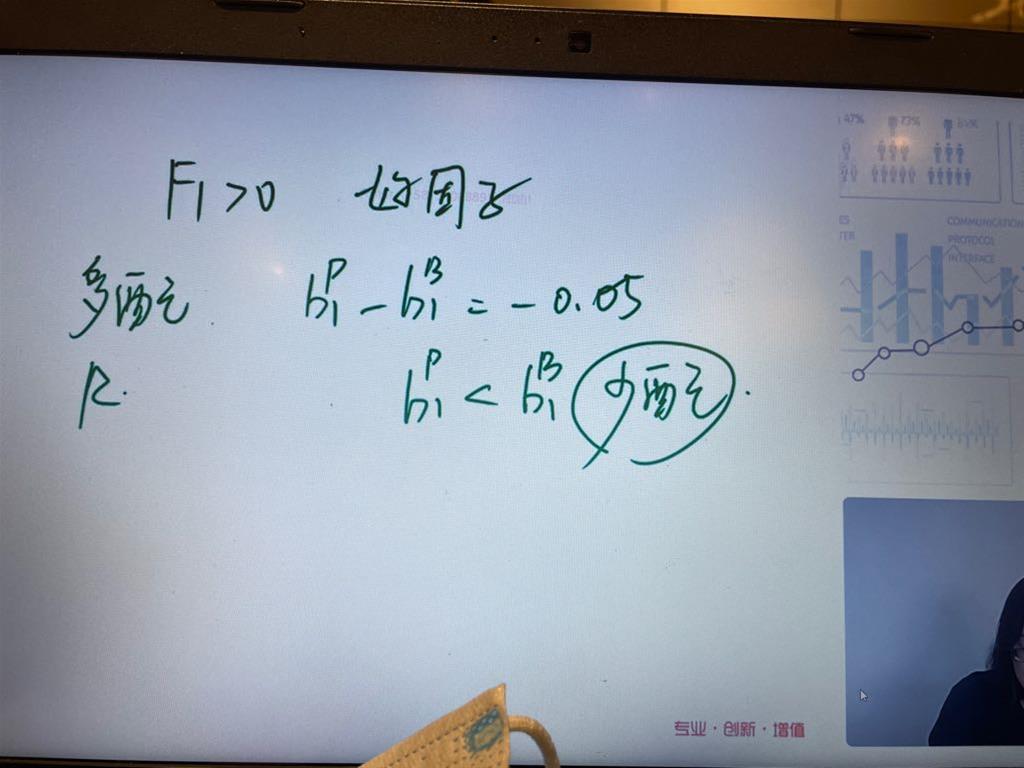 F₁>0 好因子
多配之 b₁ᴾ - b₁ᴮ = -0.05
R. b₁ᴾ < b₁ᴮ 少配之.
47% 73%
COMMUNICATION
PROTOCOL
INTERFACE
专业·创新·增值